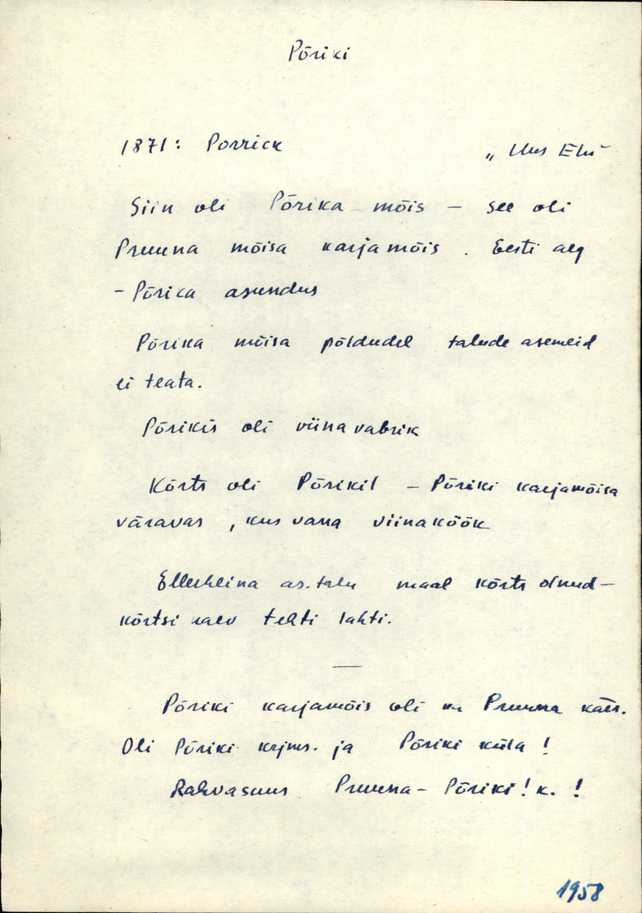 Põriki
1871: Porrick „Uus Elu"
Siin oli Põrika mõis – see oli
Pruuna mõisa karjamõis. Eesti aeg
– Põrika asundus
Põrika mõisa põldudel talude asemeid
ei teata.
Põrikis oli viinavabrik
Kõrts oli Põrikil – Põriki karjamõisa
väravas, kus vana viinakõõk
Ellerheina as. talu maal kõrts olnud –
kõrtsi kaev tehti lahti.
Põriki karjamõis oli ka Pruuna
Oli Põriki krjms. ja Põriki küla!
Rahvasuus Pruuna – Põriki! k.!
1958